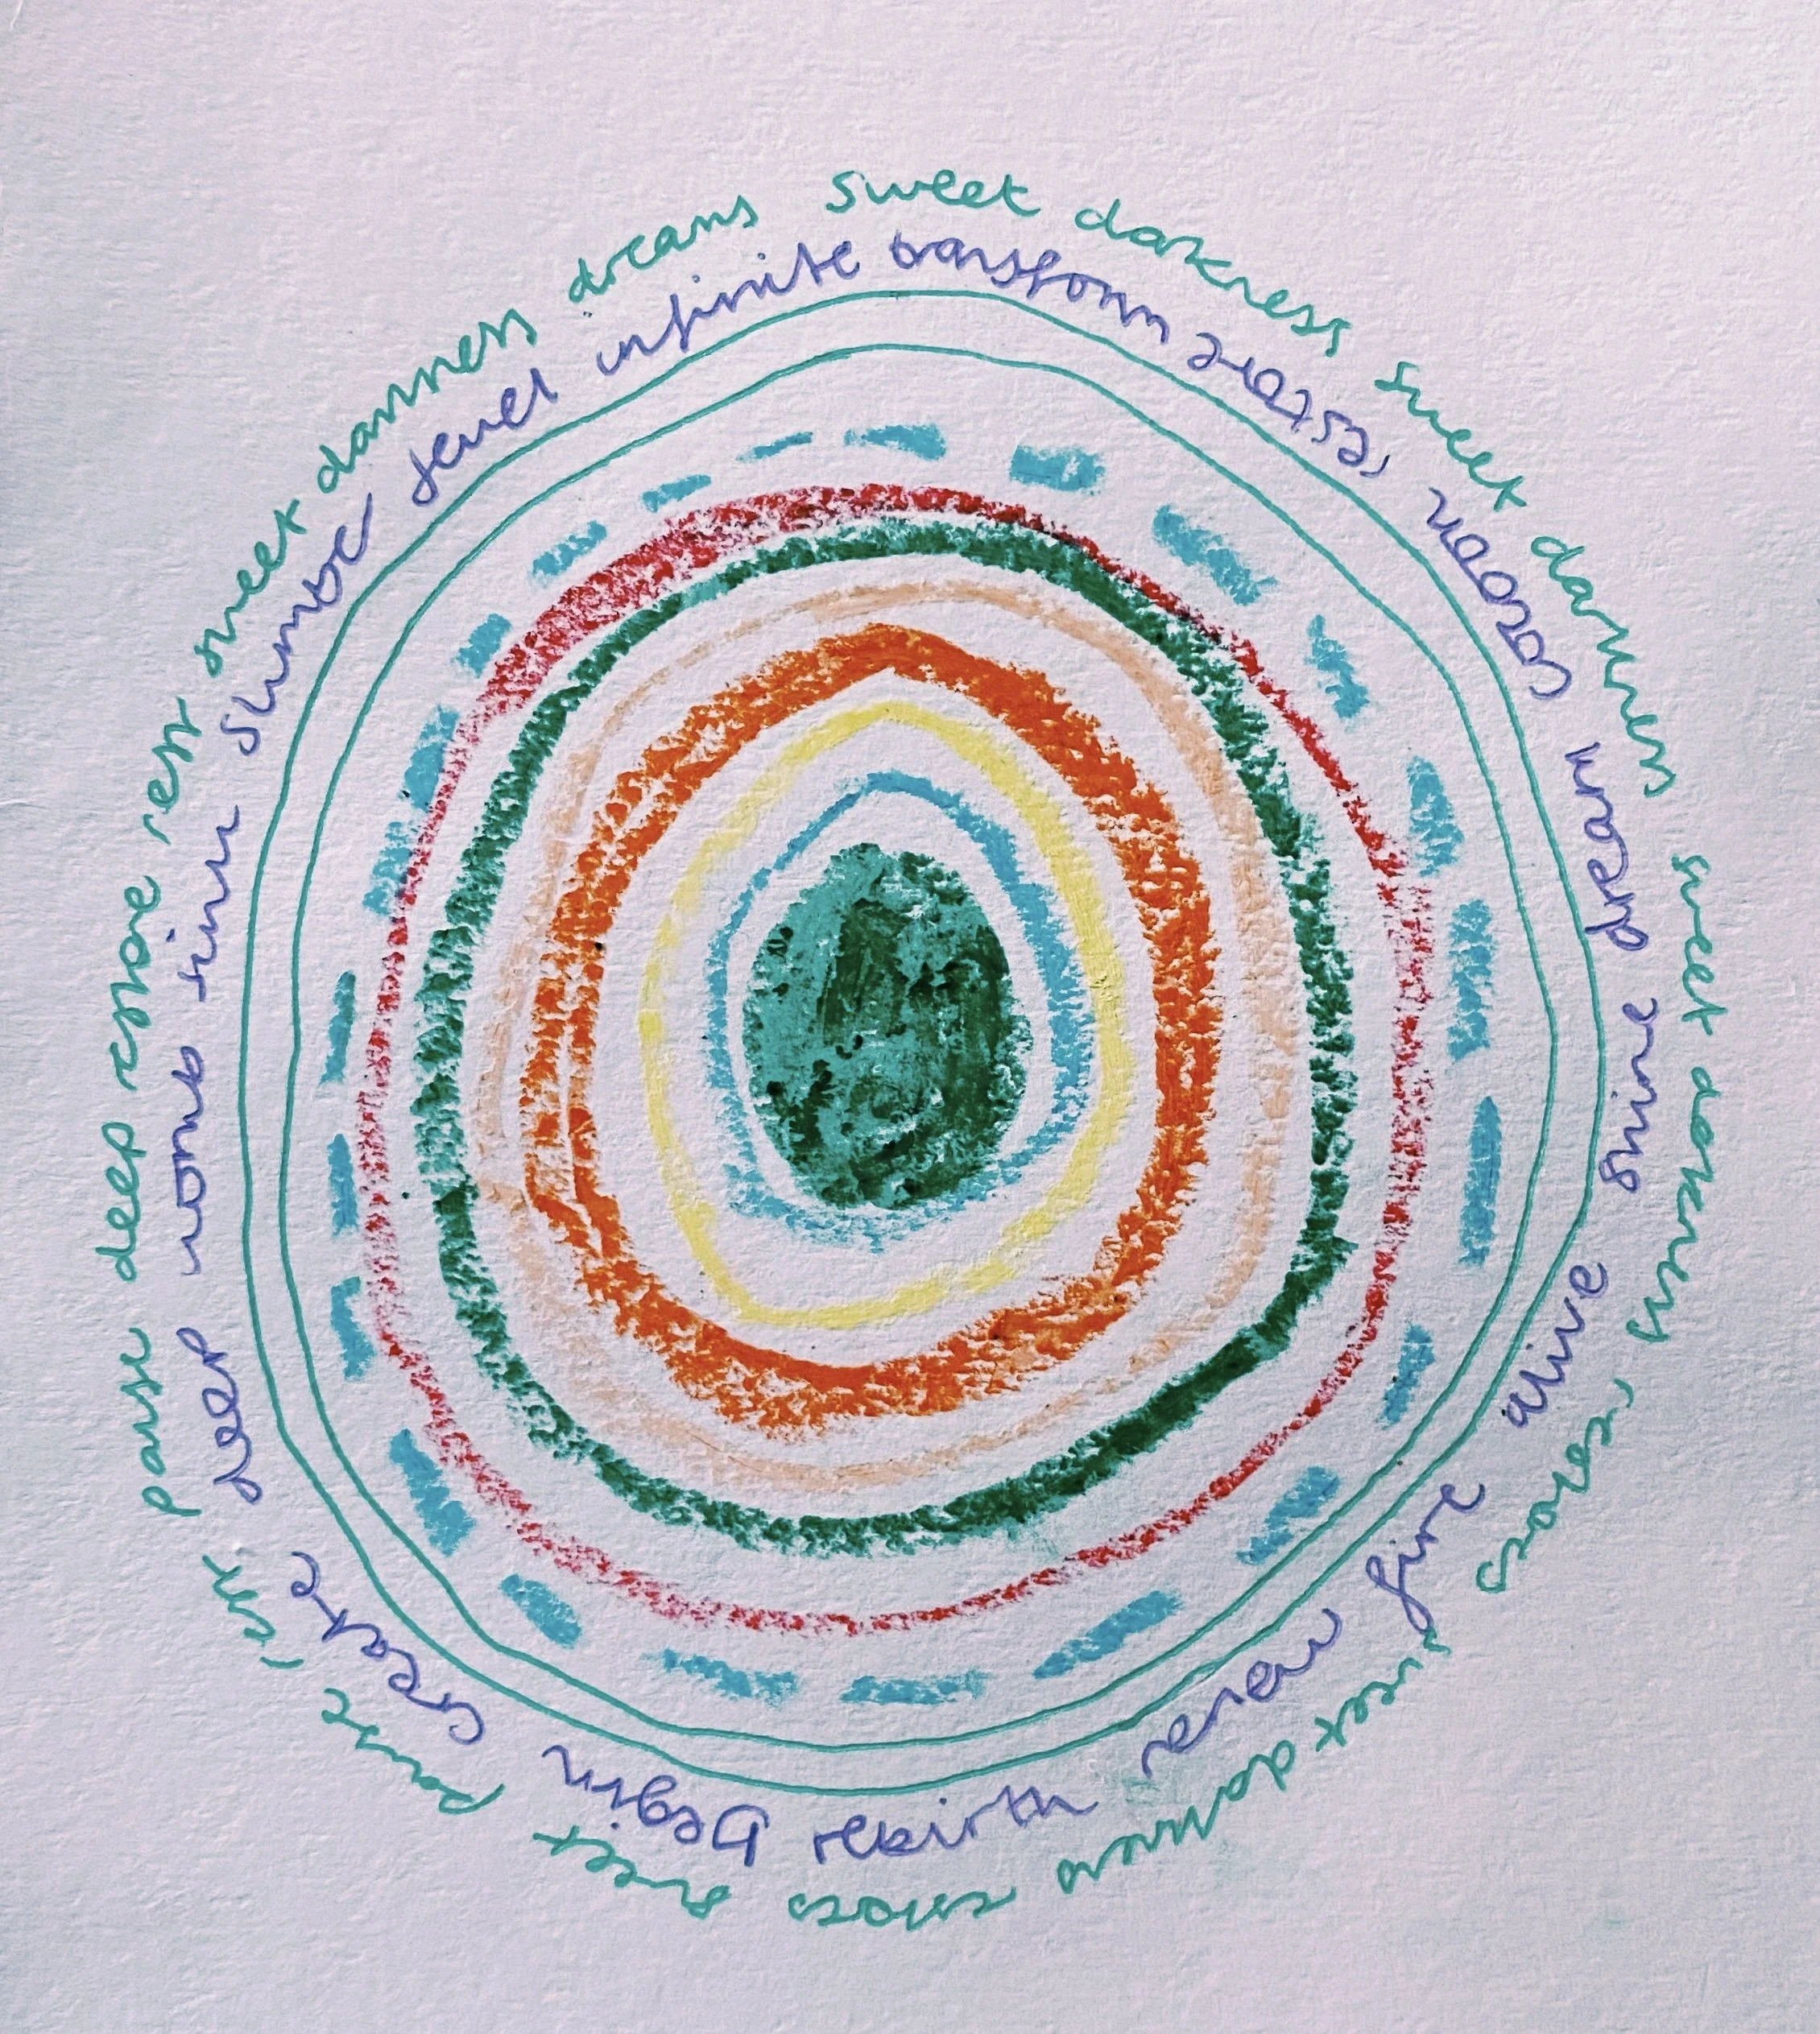 sweet darkness sweet darkness sweet darkness restores sweet darkness restores sweet pause rest pause deep restore rest sweet darkness dreams
transform restore cocoon dream shine alive fire rebirth begin create deep womb sink slumber jewel infinite